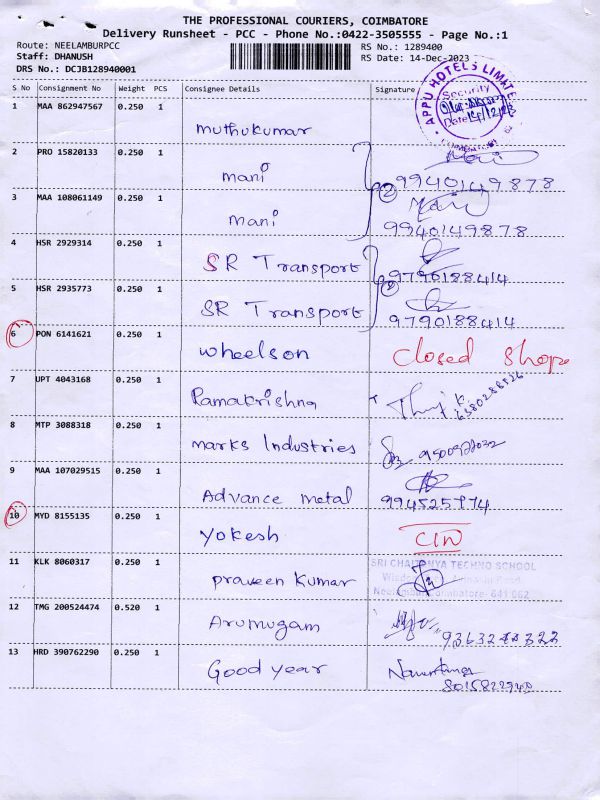 THE PROFESSIONAL COURIERS, COIMBATORE
Delivery Runsheet - PCC - Phone No.:0422-3505555 - Page No.:1
Route: NEELAMBURPCC
RS No.: 1289400
Staff: DHANUSH
RS Date: 14-Dec-2023
DRS No.: DCJB128940001
APPU HOTELS LIMITE
Security
Date 14/12/23
S No Consignment No Weight PCS Consignee Details Signature
1 MAA 862947567 0.250 1 muthukumar
2 PRO 15820133 0.250 1 mani 2 9940149878
3 MAA 108061149 0.250 1 mani 9940149878
4 HSR 2929314 0.250 1 SR Transport 9790188414
5 HSR 2935773 0.250 1 SR Transport 2 9790188414
6 PON 6141621 0.250 1 wheelson closed shop
7 UPT 4043168 0.250 1 Ramakrishna
8 MTP 3088318 0.250 1 marks Industries
9 MAA 107029515 0.250 1 Advance metal
10 MYD 8155135 0.250 1 yokesh CIN
SRI CHAITANYA TECHNO SCHOOL
11 KLK 8060317 0.250 1 praveen kumar
Coimbatore- 641 062
12 TMG 200524474 0.520 1 Arumugam
13 HRD 390762290 0.250 1 Good year